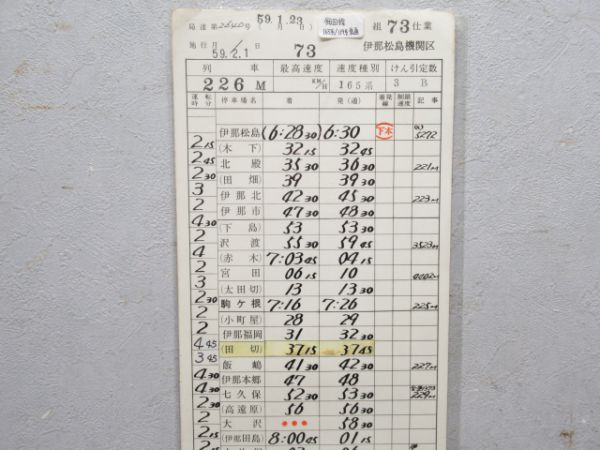 局達第2640号 59.1.23 (月 日) 組 73 仕業
施行 月 日 59.2.1 73 伊那松島機関区
列車 最高速度 速度種別 けん引定数
226M KM/H 165系 3 B
運転時分 停車場名 着 発(通) 着発線 制限速度 記事
伊那松島 (6:28 30) 6:30 下本 5272
2 15 (木下) 32 15 32 45
2 45 北殿 35 30 36 30 221M
2 30 (田畑) 39 39 30
3 伊那北 42 30 45 30 223M
2 伊那市 47 30 48 30
4 30 (下島) 53 53 30
2 沢渡 55 30 59 45 3523M
4 (赤木) 7:03 45 04 15
2 宮田 06 15 10
3 (太田切) 13 13 30
2 30 駒ケ根 7:16 7:26 225M
2 (小町屋) 28 29
2 伊那福岡 31 32 30
4 45 (田切) 37 15 37 45
3 45 飯嶋 41 30 42 30 227M
4 30 伊那本郷 47 48
4 30 七久保 52 30 53 30 229M
2 30 (高遠原) 56 56 30
2 大沢 58 30
2 15 (伊那田島) 8:00 45 01 15